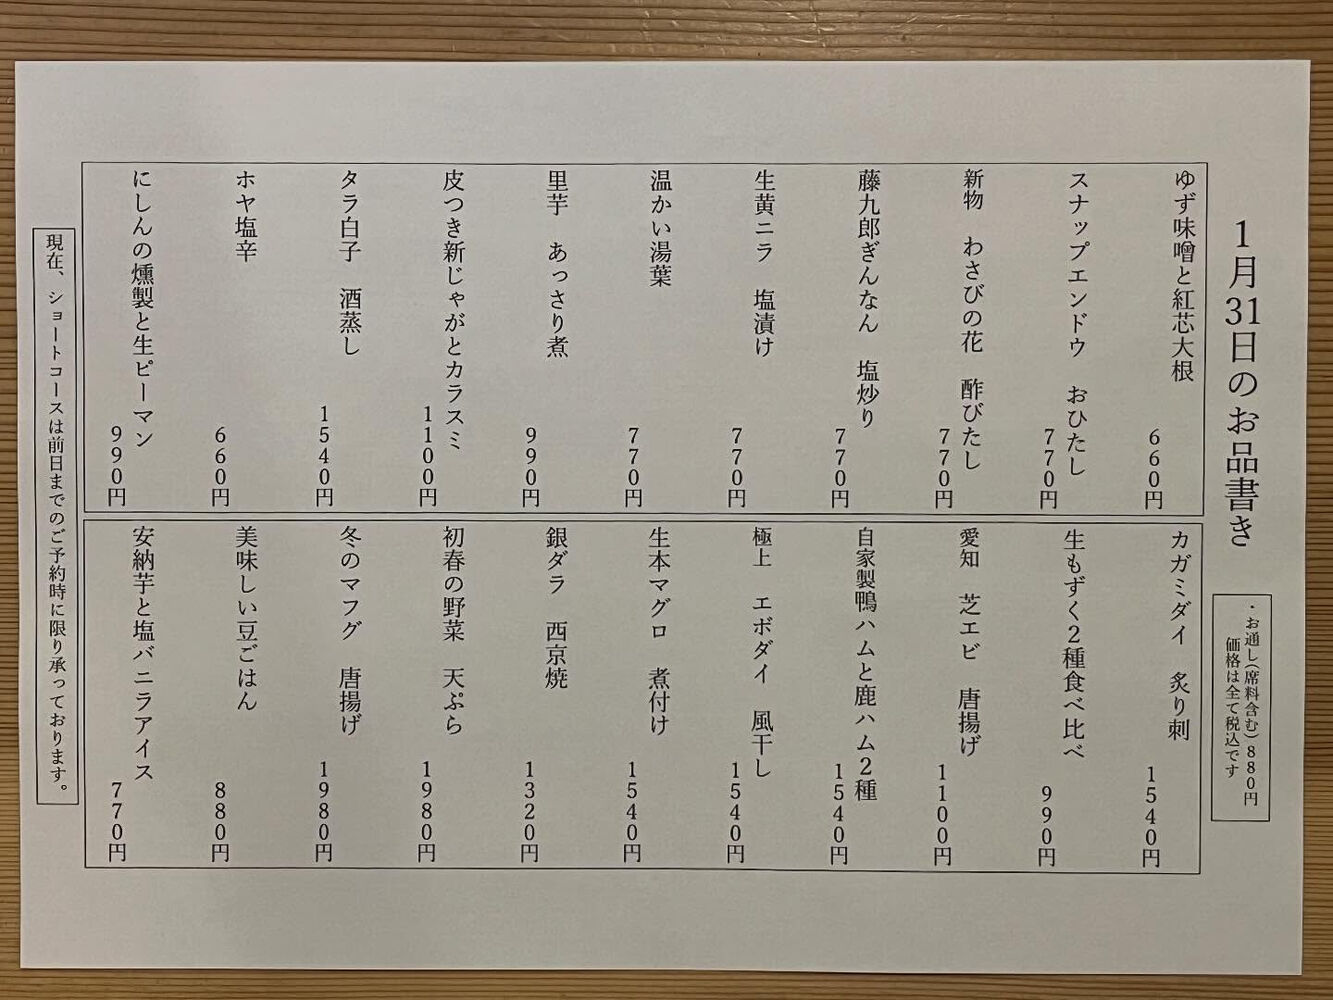 1月31日のお品書き
・お通し(席料含む)880円
価格は全て税込です
ゆず味噌と紅芯大根
660円
スナップエンドウ おひたし
770円
新物 わさびの花 酢びたし
770円
藤九郎ぎんなん 塩炒り
770円
生黄ニラ 塩漬け
770円
温かい湯葉
770円
里芋 あっさり煮
990円
皮つき新じゃがとカラスミ
1100円
タラ白子 酒蒸し
1540円
ホヤ塩辛
660円
にしんの燻製と生ピーマン
990円
カガミダイ 炙り刺
1540円
生もずく2種食べ比べ
990円
愛知 芝エビ 唐揚げ
1100円
自家製鴨ハムと鹿ハム2種
1540円
極上 エボダイ 風干し
1540円
生本マグロ 煮付け
1540円
銀ダラ 西京焼
1320円
初春の野菜 天ぷら
1980円
冬のマフグ 唐揚げ
1980円
美味しい豆ごはん
880円
安納芋と塩バニラアイス
770円
現在、ショートコースは前日までのご予約時に限り承っております。